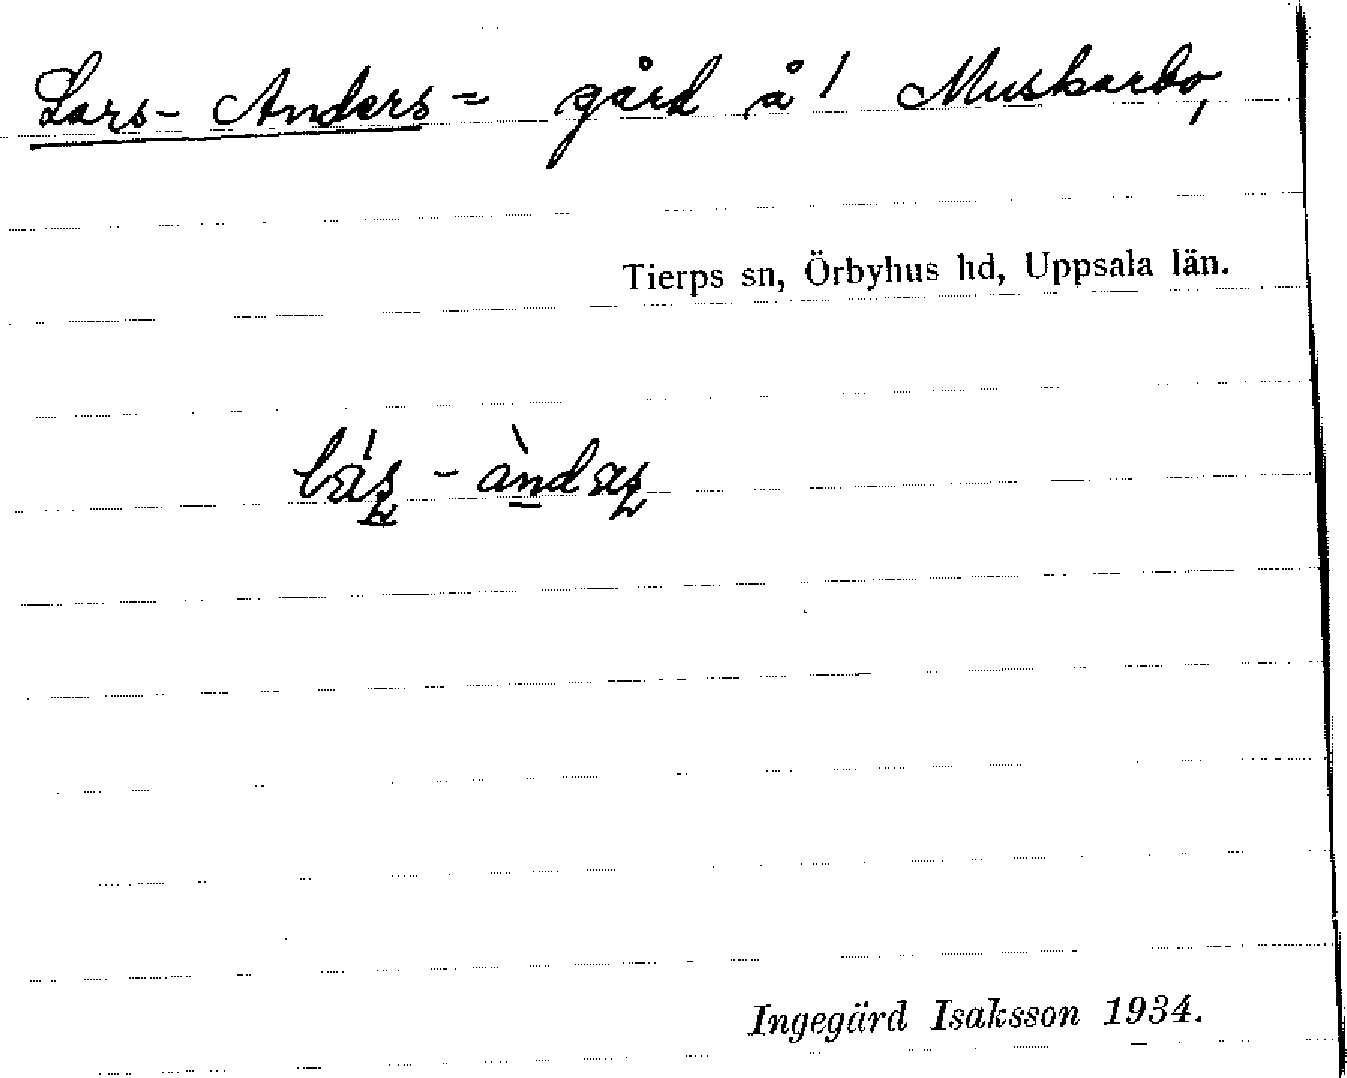 Lars-Anders= gård å! Muskarbo,
Tierps sn, Örbyhus hd, Uppsala län.
Ingegärd Isaksson 1934.